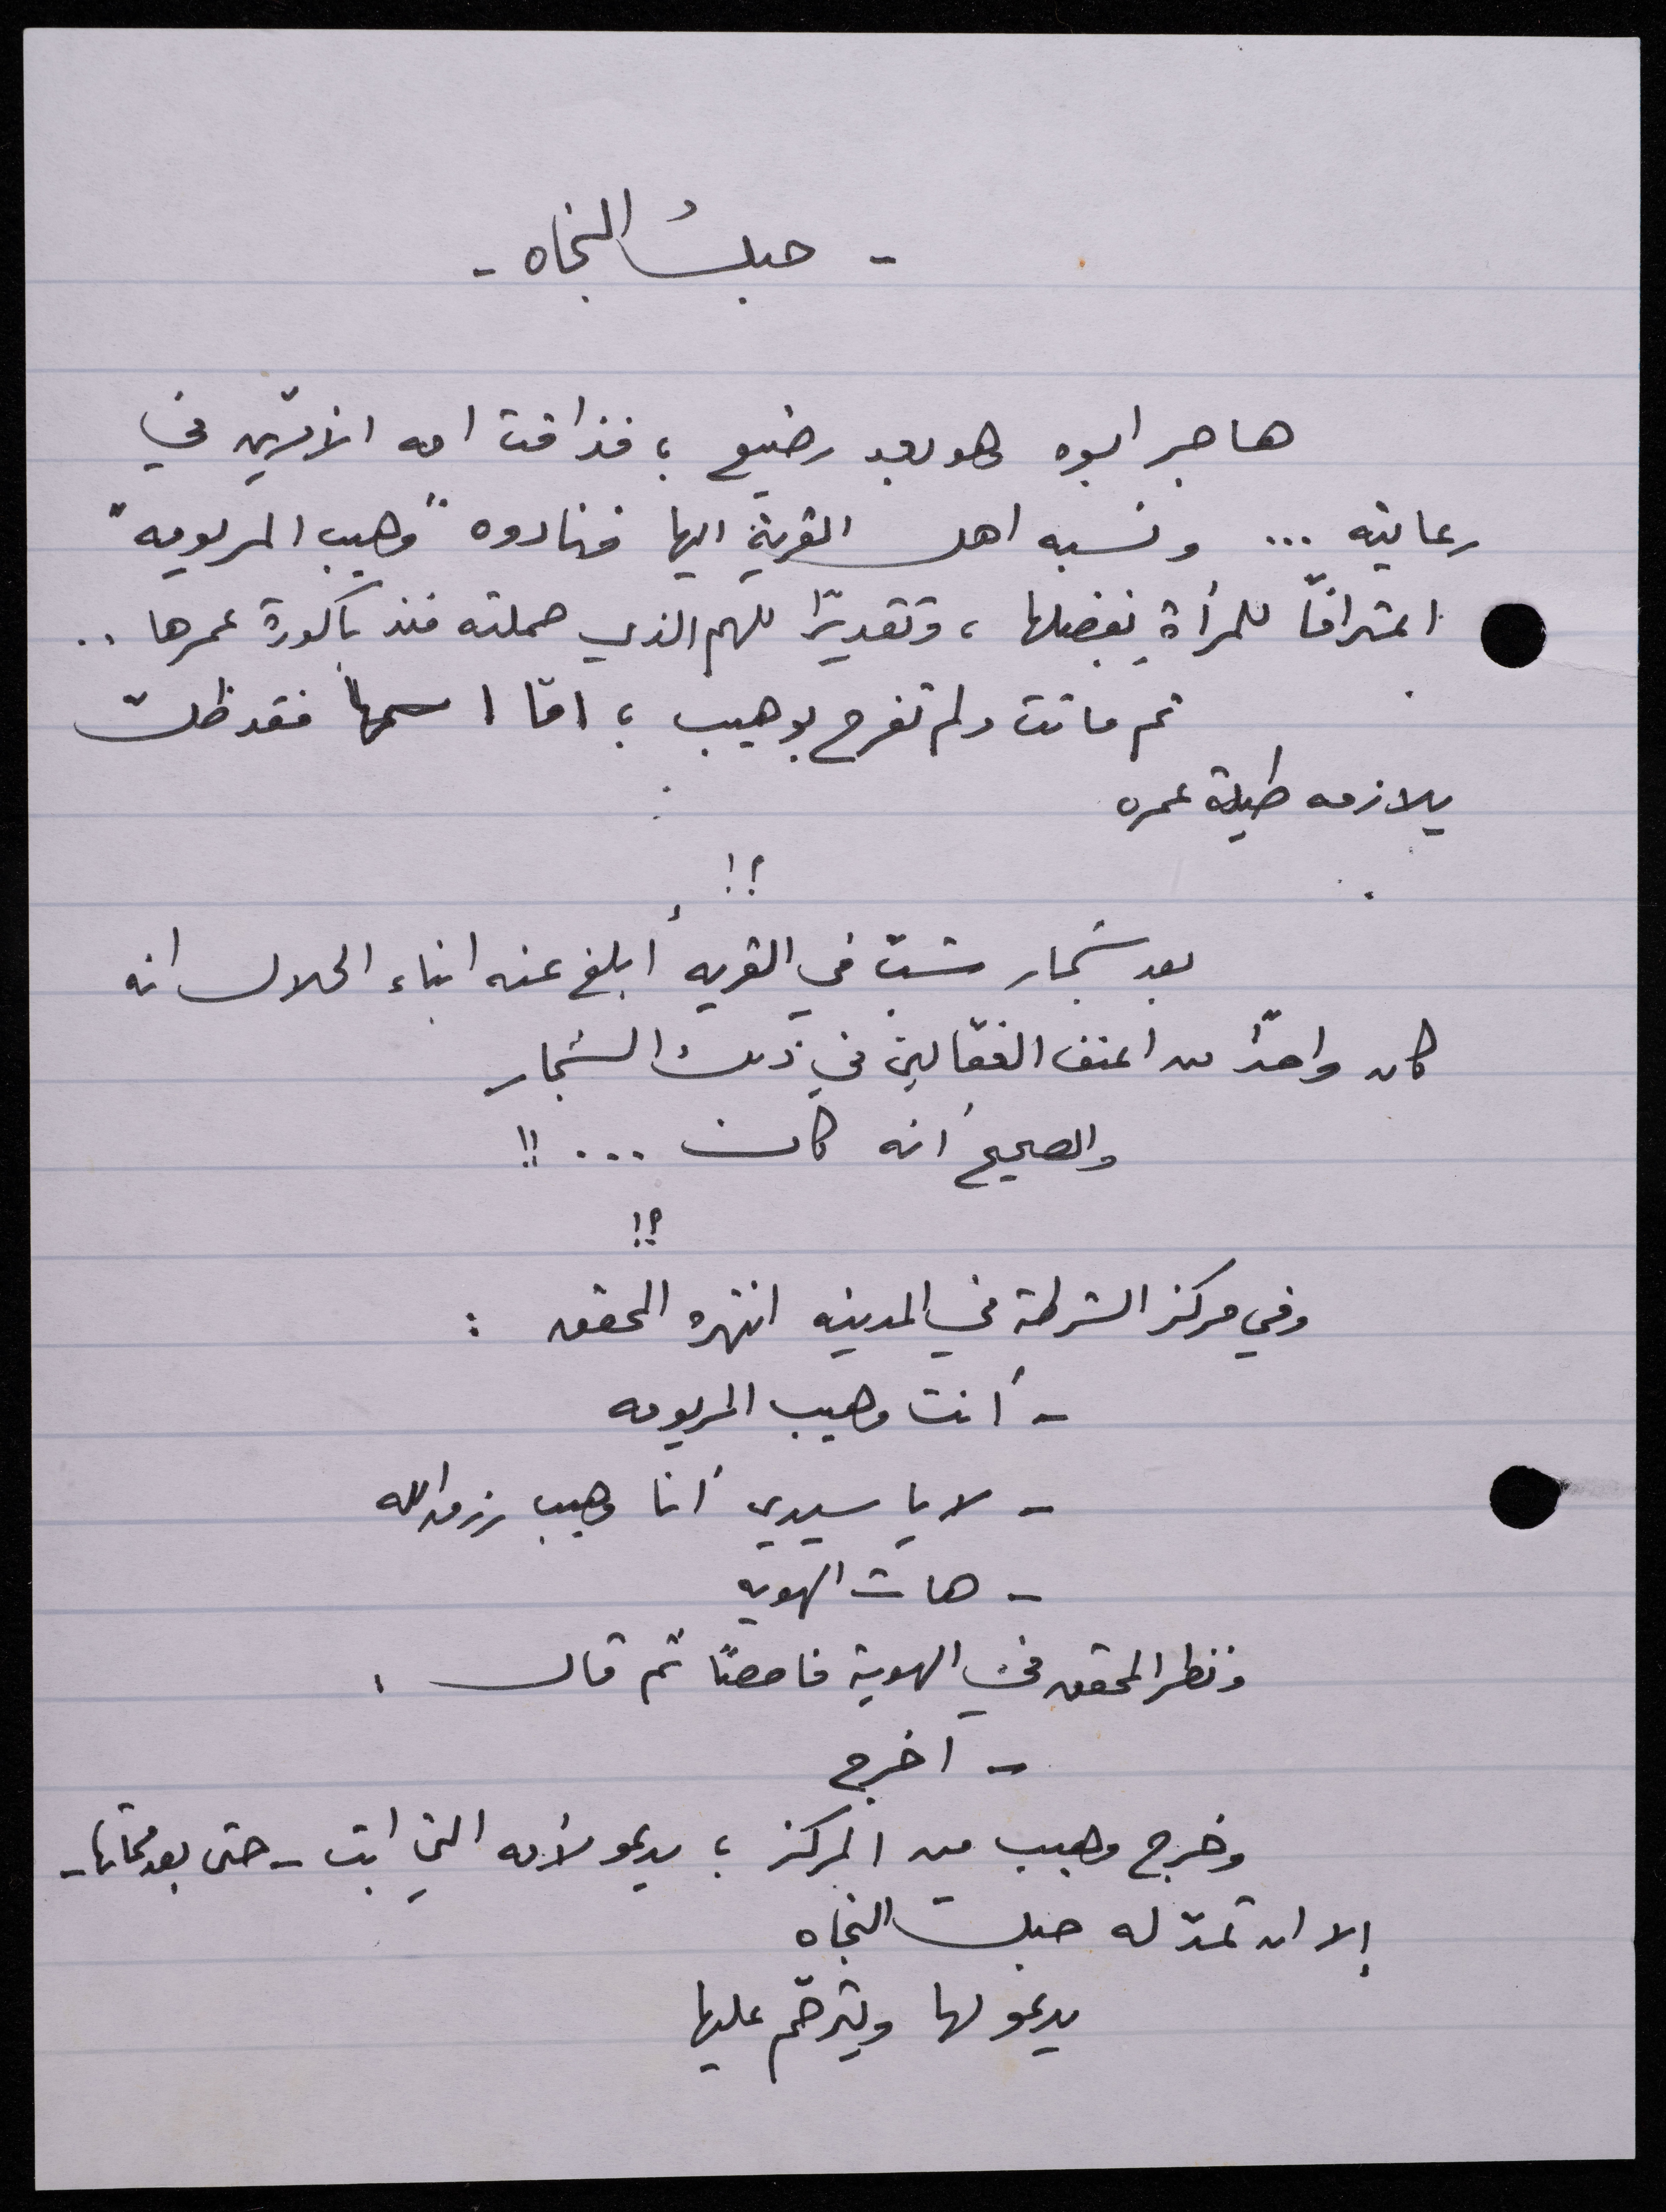 - حبلُ النجاه -
هاجر ابوه وهو بعد رضيع ؛ فذاقت امه الأمرّين في
رعايته ... ونسبه اهل القرية اليها فنادوه "وهيب المريومه"
اعترافًا للمرأة بفضلها ، وتقديرًا للهم الذي حملته منذ باكورة عمرها ..
ثم ماتت ولم تفرح بوهيب ؛ امّا اسمها فقد ظلّ
يلازمه طيلة عمره
؟!
بعد شجار شبّ في القريه أبلغ عنه ابناء الحلال انه
كان واحدًا من اعنف الفعّالين في ذلك الشجار
والصحيح أنه كان ... !!
؟!
وفي مركز الشرطة في المدينه انتهره المحقق :
- أنت وهيب المريومه
- لا يا سيدي أنا وهيب رزق الله
- هات الهويه
ونظر المحقق في الهوية فاحصًا ثم قال :
- اخرج
وخرج وهيب من المركز ؛ يدعو لأمه التي ابت - حتى بعد مماتها -
إلا ان تمدّ له حبل النجاه
يدعو لها ويترحّم عليها